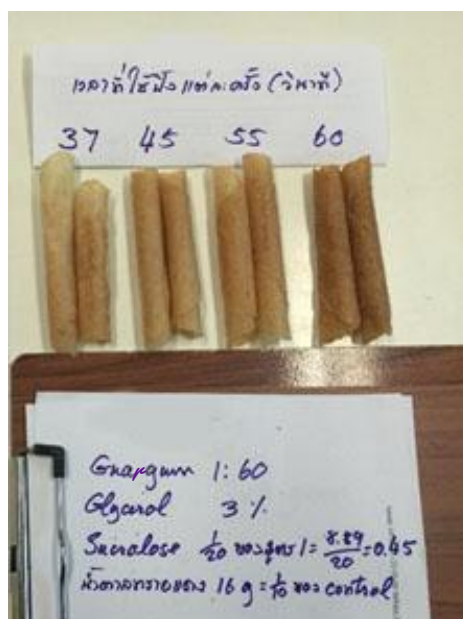 เวลาที่ใช้ปิ้งแต่ละครั้ง (วินาที)
37 45 55 60
Guargum 1:60
Glycerol 3 %
Sucralose 1/20 ของสูตร 1 = 8.89/20 = 0.45
น้ำตาลทรายแดง 16 g = 1/10 ของ control